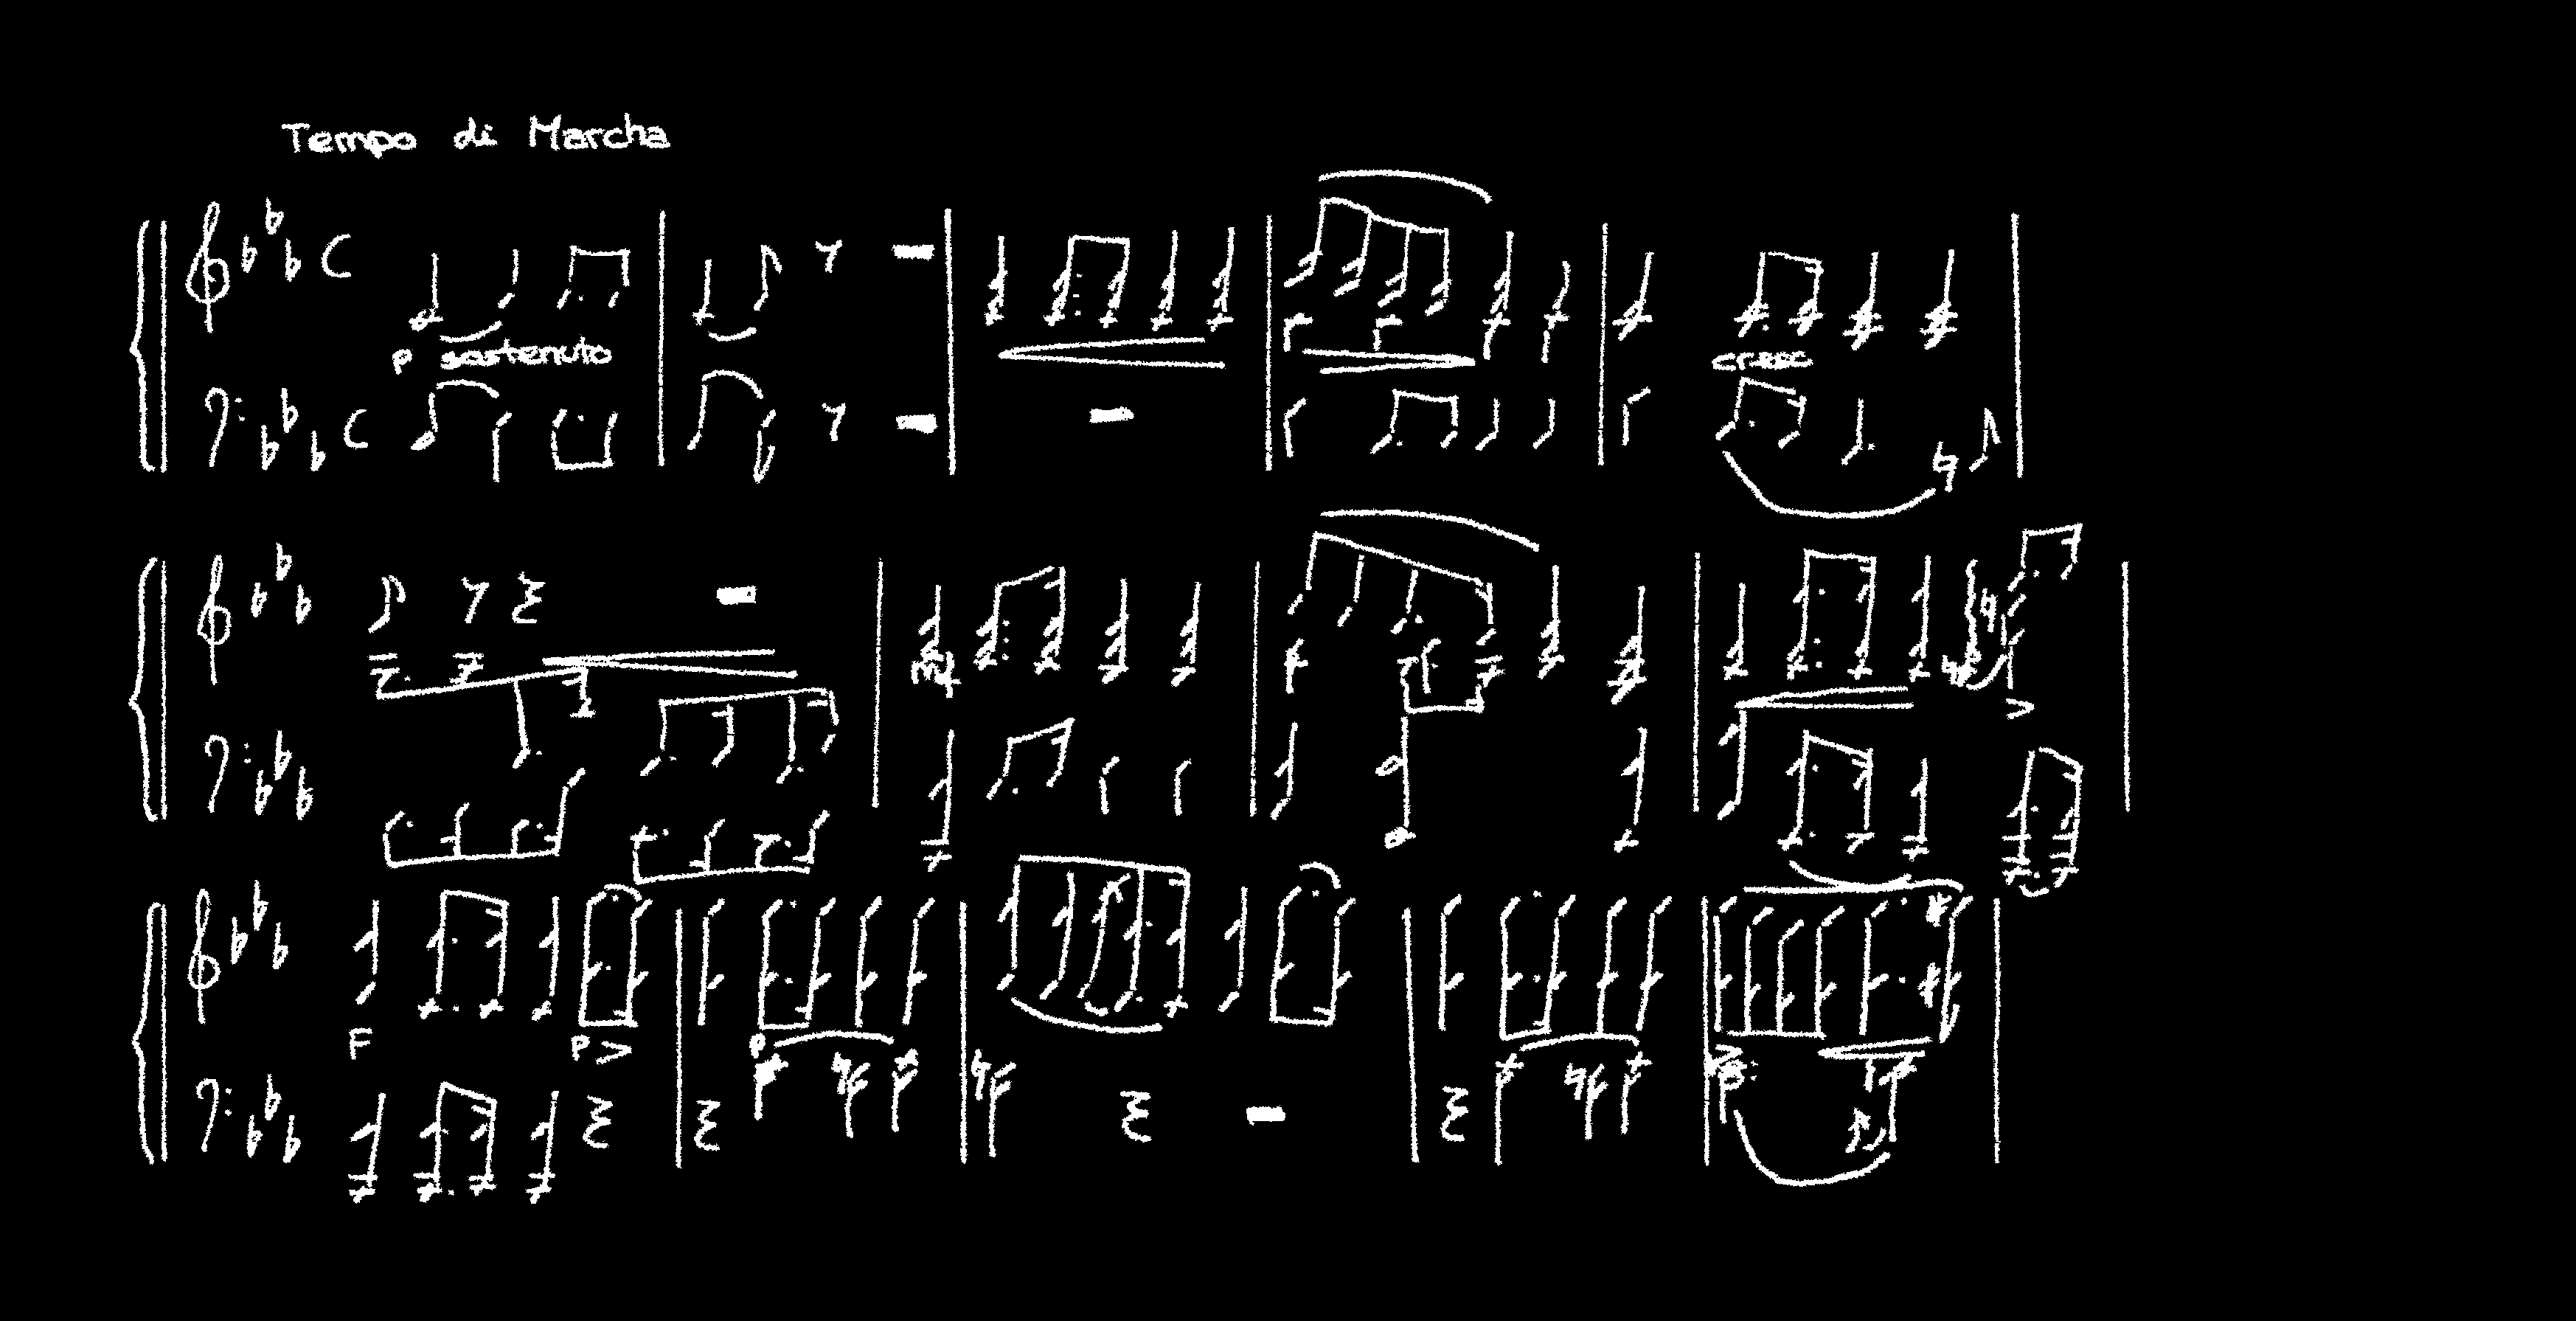 Tempo di Marcha
p sostenuto
cresc
mf
F
P
P